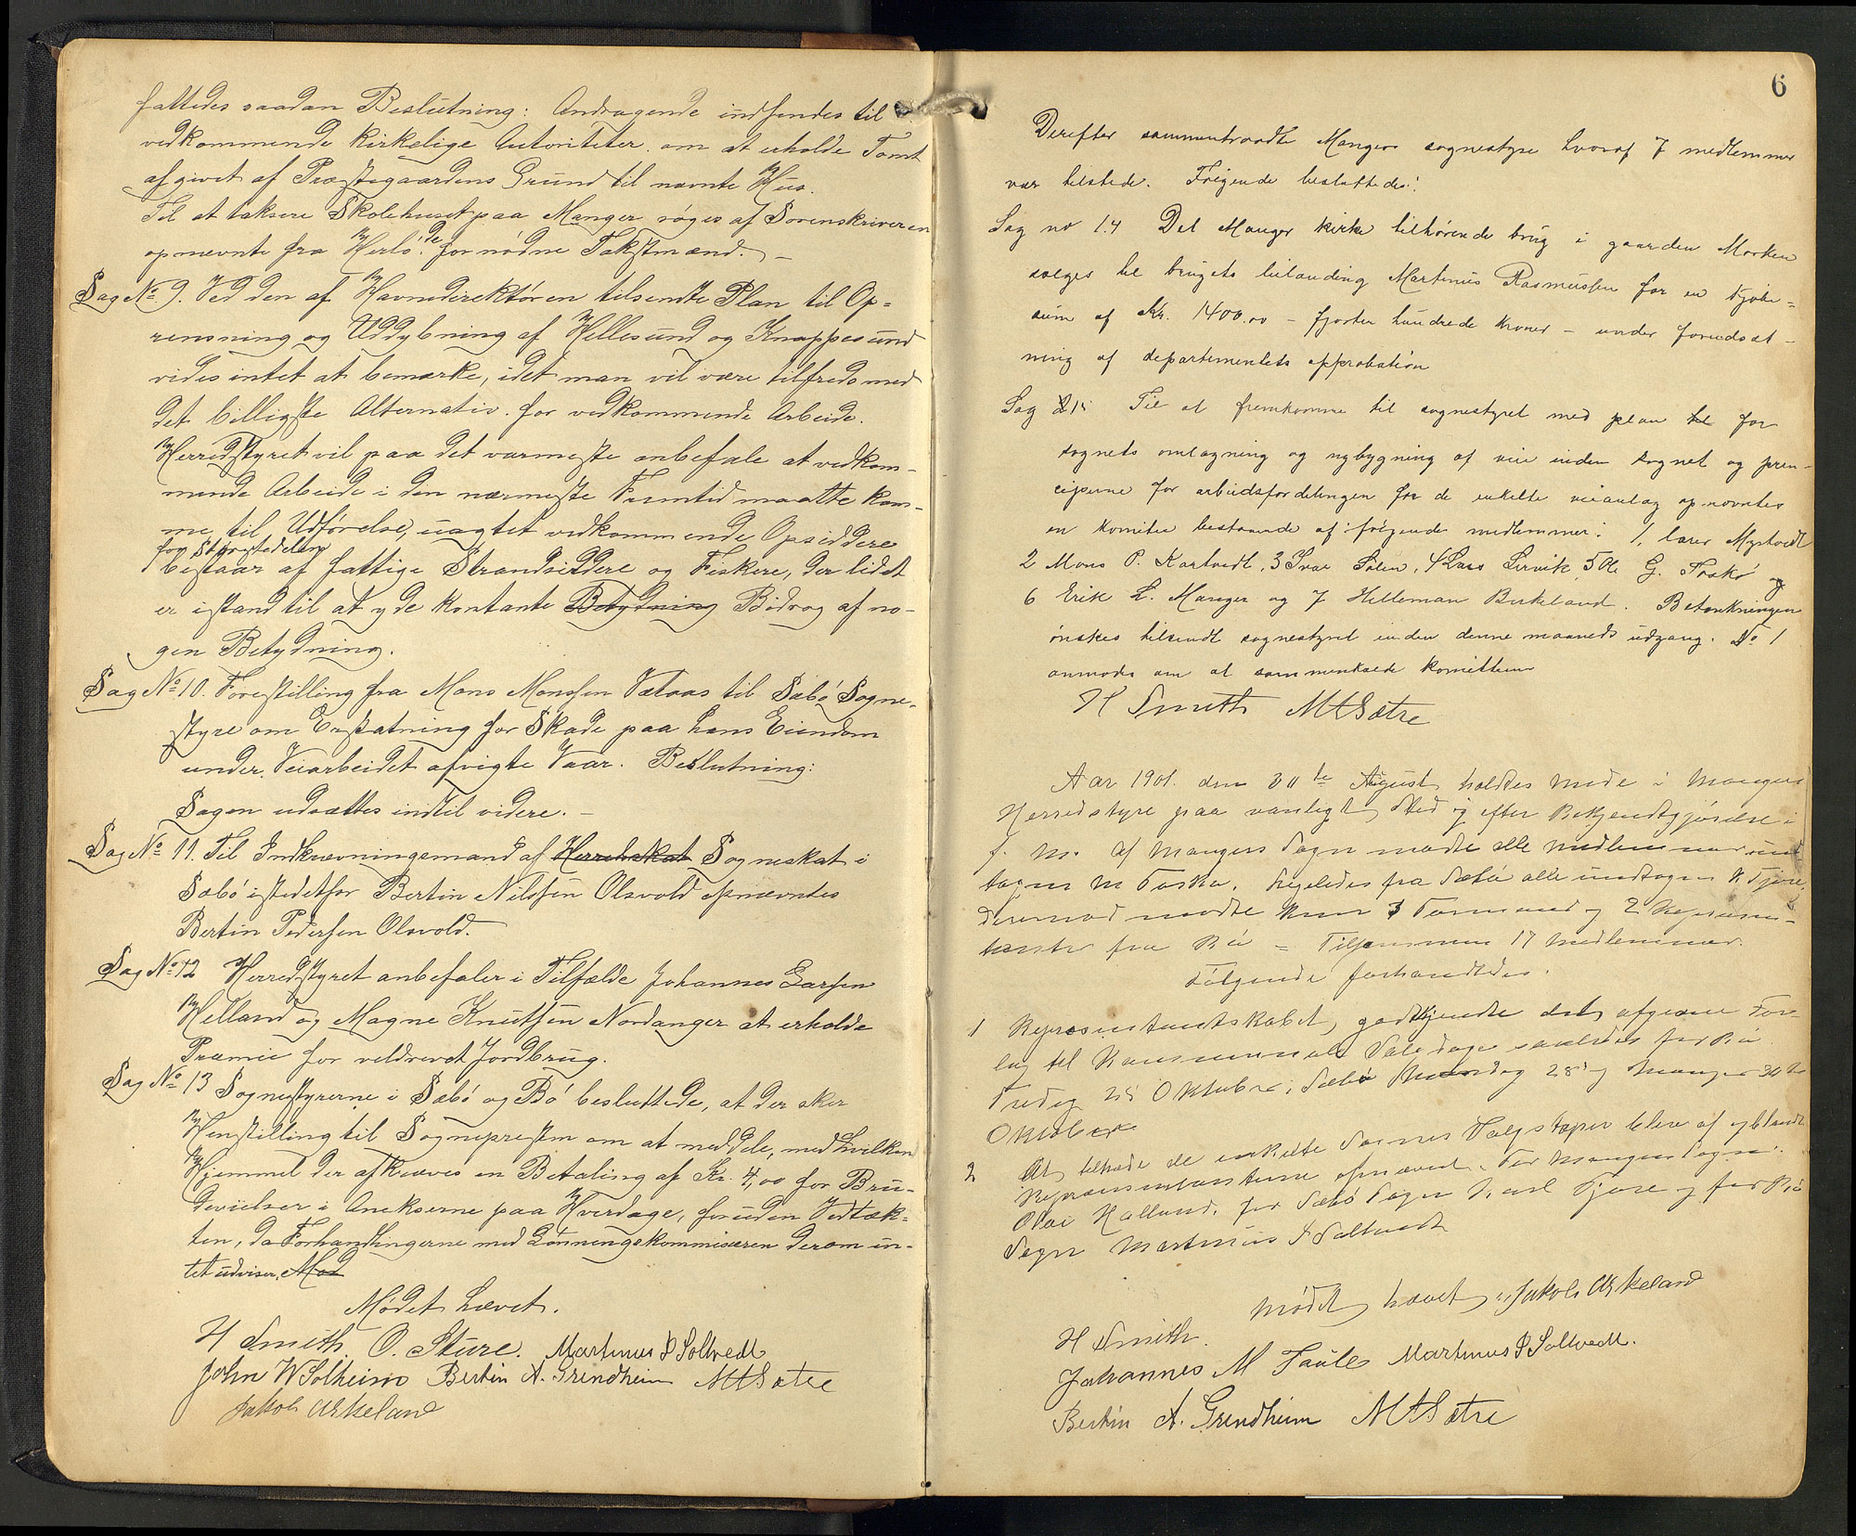 fattedes saadan Beslutning: Andragende indsendes til
vedkommende kirkelige Autoriteter om at erholde Tomt
afgivet af Præstegaardens Grund til nævnte Hus.
Til at taksere Skolehuset paa Manger søges af Sorenskriveren
opnævnte fra Herlø de fornødne Takstmænd. –
Sag No 9. Ved den af Havnedirektøren tilsendte Plan til Op-
rensning og Uddybning af Hellesund og Knappesund
vides intet at bemærke, idet man vil være tilfreds med
det billigste Alternativ for vedkommende Arbeide.
Herredstyret vil paa det varmeste anbefale at vedkom-
mende Arbeide i den nærmeste Fremtid maatte kom-
me til Udførelse, uagtet vedkommende Opsiddere
for Størstedelen
bestaar af fattige Strandsiddere og Fiskere, der lidet
er istand til at yde kontante Betydning Bidrag af no-
gen Betydning.
Sag No 10. Forestilling fra Mons Monsen Vetaas til Sæbø Sogne-
styre om Erstatning for Skade paa hans Eiendom
under Veiarbeidet afvigte Vaar. Beslutning:
Sagen udsættes indtil videre. –
Sag No 11. Til Indkrævningsmand af Herredskat Sogneskat i
Sæbø istedetfor Bertin Nilssen Olsvold opnævntes
Bertin Pedersen Olsvold.
Sag No 12 Herredstyret anbefaler i Tilfælde Johannes Larsen
Helland og Magne Knutsen Nordanger at erholde
Præmie for veldrevet Jordbrug.
Sag No 13 Sognestyrerne i Sæbø og Bø besluttede, at der sker
Henstilling til Sognepresten om at meddele, med hvilken
Hjemmel der afkræves en Betaling af Kr. 4,00 for Bru-
devielser i Anekserne paa Hverdage, foruden Vedtæk-
ten, da Forhandlingerne med Lønningskommisæren derom in-
tet udviser. Mød
Mødet hævet.
H Smith. O. Sture. Martinus J Soltvedt
John W Solheim Bertin A. Grindheim M A Sætre
Jakob Askeland
6
Derefter sammentraadte Mangers sognestyre hvoraf 7 medlemmer
var tilstede. Følgende besluttedes:
Sag no 14 Det Manger kirke tilhørende brug i gaarden Morken
sælges til brugets leilænding Martinus Rasmussen for en kjøbe-
sum af Kr. 1400.00 – fjorten hundrede kroner – under forudsæt-
ning af departementets approbation
Sag 15 Til at fremkomme til sognestyret med plan til for
sognets omlægning og nybygning af veie inden sognet og prin-
ciperne for arbeidsfordelingen for de enkelte veianlæg opnævntes
en komite bestaaende af følgende medlemmer: 1. lærer Mystvedt
2 Mons P. Kartvedt, 3 Ivar Solem, 4 Lars Lervik, 5 Ole G. Toskø og
6 Erik L. Manger og 7 Helleman Birkeland. Betænkningen
ønskes tilsendt sognestyret inden denne maaneds udgang. No 1
anmodes om at sammenkalde komitteen
H Smith M A Sætre
Aar 1901. den 30te August holdtes møde i Mangers
Herredsstyre paa vanligt Sted og efter Bekjendtgjørelse i
f. M. af Mangers Sogn mødte alle Medlemmer und
tagen M Toska. Ligeledes fra Sæbø alle undtagen K Fjære,
derimod mødte kun 3 Formænd og 2 Repræsen-
tanter fra Bø = Tilsammen 17 Medlemmer.
Følgende forhandledes.
1 Repræsentantskabet godkjendte det afgivne For
lag til Kommunale Valgdage saaledes for Bø
Fredag 25 Oktober, Sæbø Mandag 28 og Manger 30te
Oktober
2 At tiltræde de enkelte Sognes Valgstyrer blev af iblandt
Repræsentanterne opnævnt. For Mangers Sogn:
Olai Halland, for Sæbø Sogn Karl Fjære og for Bø
Sogn Martinus J Soltvedt
Mødet hævet. Jakob Askeland
H Smith.
Johannes M Taule Martinus J Soltvedt.
Bertin A. Grindheim M A Sætre